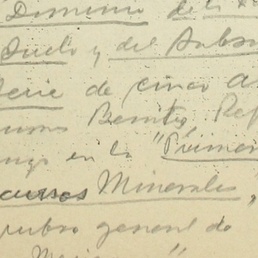 Dominio de la
Suelo y del Subs
Serie de cinco a
Benitez Ref
en la "Primer
cursos Minerales,
rubro general de